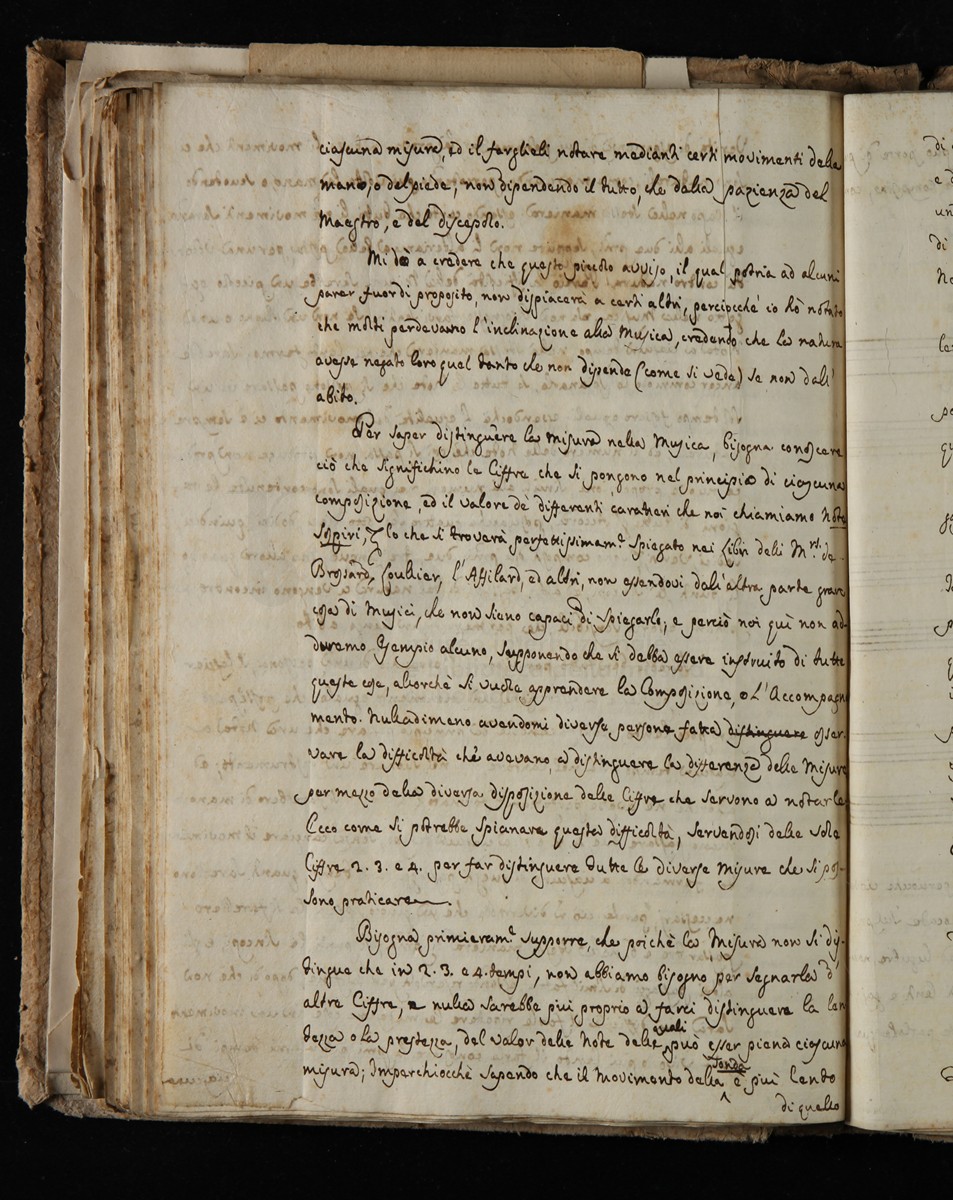 ciascuna misura, ed il farglieli notare mediante certi movimenti della
mano, o del piede; non dipendendo il tutto, che dalla pazienza del
Maestro, e del discepolo.
Mi dò a credere che questo piccolo avviso, il qual potria ad alcuni
parer fuor di proposito, non dispiacerà a certi altri, perciocchè io hò notato
che molti perdevano l'inclinazione alla Musica, credendo che la natura
avesse negato loro quel tanto che non dipende (come si vede) se non dall'
abito.
Per saper distinguere la misura nella Musica, bisogna conoscere
ciò che significhino le Ciffre che si pongono nel principio di ciascuna
composizione, ed il valore dè differenti caratteri che noi chiamiamo Note
Sospiri, lo che si troverà perfettissimam.e spiegato nei Libri delli M.rs de
Brossard, Loulier, l'Affilard, ed altri, non essendovi dall'altra parte gran
cosa di Musici, che non sieno capaci di spiegarlo; e perciò noi quì non ad-
durremo Esempio alcuno, supponendo che si debba essere instruito di tutte
queste cose, allorchè si vuole apprendere la Composizione, o L'Accompagn
mento. Nulladimeno avendomi diverse persone fatta distinguere osser-
vare la difficoltà che avevano a distinguere la differenza delle Misure
per mezzo della diversa disposizione delle Ciffre che servono a notarle
Ecco come si potrebbe spianare questa difficoltà, servendosi delle sole
Ciffre 2. 3. e 4. per far distinguere tutte le diverse misure che si pos-
sono praticare.
Bisogna primieram.e supporre, che poichè la Misura non si dis-
tingue che in 2. 3. e 4. tempi, non abbiamo bisogno per segnarla d'
altre Ciffre, e nulla sarebbe più proprio a farci distinguere la len
tezza o la prestezza, del valor delle Note delle quali può esser piena ciascuna
misura; Imperciocchè sapendo che il Movimento della Tonda è più lento
di quello